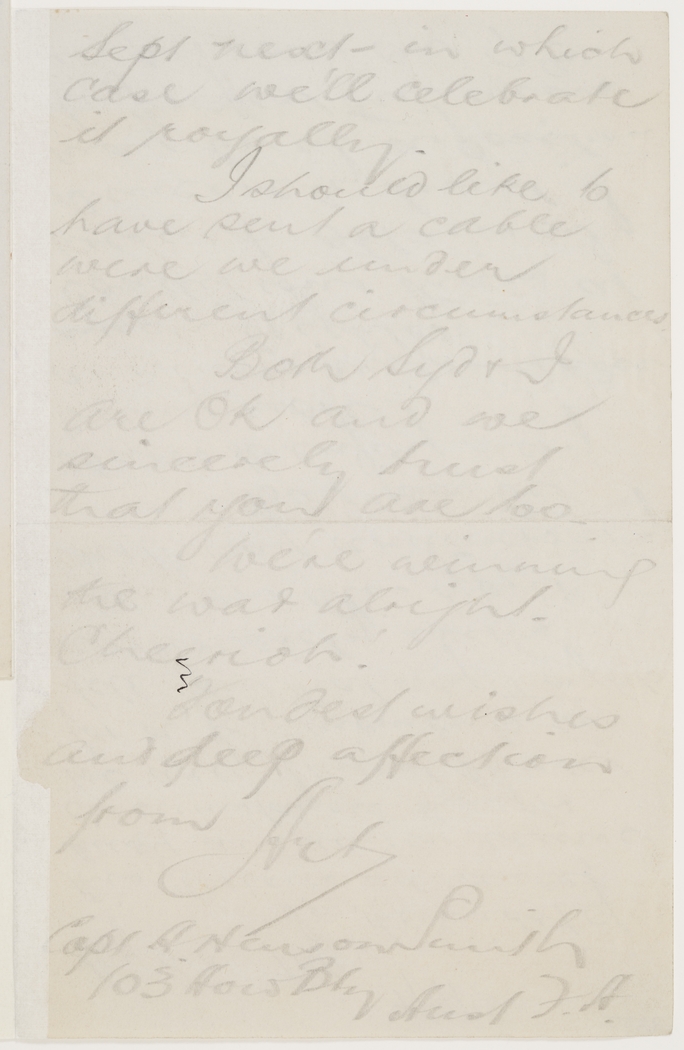 Sept next - in which
case we'll celebrate
it royally.
I should like to
have sent a cable
were we under
different circumstances
Both Syd & I
are OK and we
sincerely trust
that you are too
We're winning
the war alright.
Cheerioh!
Fondest wishes
and deep affection
from Art
Capt A Henson Smith
103 How Bty Aust F.A.